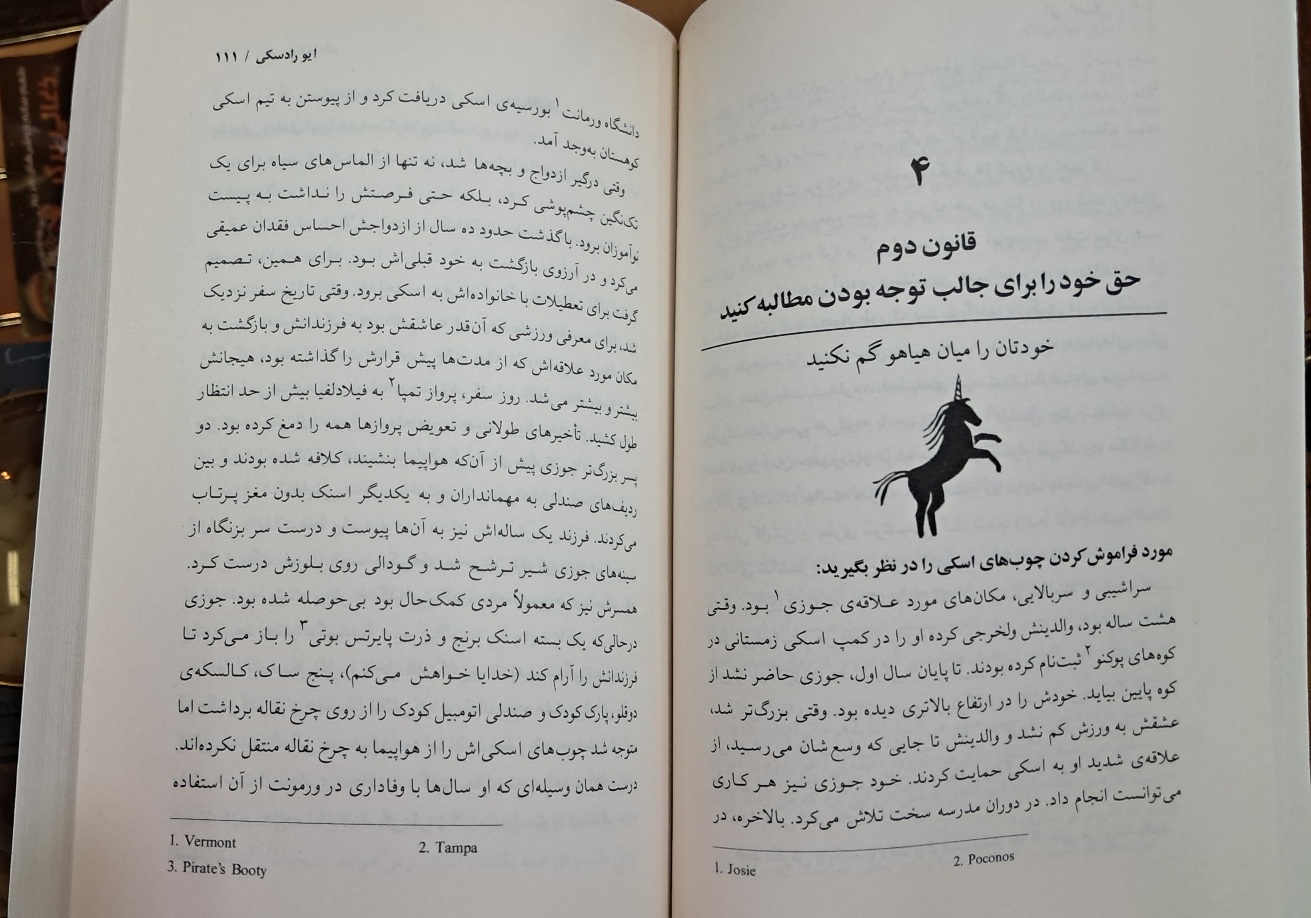 ۴
قانون دوم
حق خود را برای جالب توجه بودن مطالبه کنید
خودتان را میان هیاهو گم نکنید
مورد فراموش کردن چوب‌های اسکی را در نظر بگیرید:
سراشیبی و سربالایی، مکان‌های مورد علاقه‌ی جوزی۱ بود. وقتی
هشت ساله بود، والدینش ولخرجی کرده او را در کمپ اسکی زمستانی در
کوه‌های پوکنو۲ ثبت‌نام کرده بودند. تا پایان سال اول، جوزی حاضر نشد از
کوه پایین بیاید. خودش را در ارتفاع بالاتری دیده بود. وقتی بزرگ‌تر شد،
عشقش به ورزش کم نشد و والدینش تا جایی که وسع شان می‌رسید، از
علاقه‌ی شدید او به اسکی حمایت کردند. خود جوزی نیز هر کاری
می‌توانست انجام داد. در دوران مدرسه سخت تلاش می‌کرد. بالاخره، در
1. Josie
2. Poconos
ایو رادسکی / ۱۱۱
دانشگاه ورمانت۱ بورسیه‌ی اسکی دریافت کرد و از پیوستن به تیم اسکی
کوهستان به‌وجد آمد.
وقتی درگیر ازدواج و بچه‌ها شد، نه تنها از الماس‌های سیاه برای یک
تک‌نگین چشم‌پوشی کرد، بلکه حتی فرصتش را نداشت به پیست
نوآموزان برود. با گذشت حدود ده سال از ازدواجش احساس فقدان عمیقی
می‌کرد و در آرزوی بازگشت به خود قبلی‌اش بود. برای همین، تصمیم
گرفت برای تعطیلات با خانواده‌اش به اسکی برود. وقتی تاریخ سفر نزدیک
شد، برای معرفی ورزشی که آن‌قدر عاشقش بود به فرزندانش و بازگشت به
مکان مورد علاقه‌اش که از مدت‌ها پیش قرارش را گذاشته بود، هیجانش
بیشتر و بیشتر می‌شد. روز سفر، پرواز تمپا۲ به فیلادلفیا بیش از حد انتظار
طول کشید. تأخیرهای طولانی و تعویض پروازها همه را دمغ کرده بود. دو
پسر بزرگ‌تر جوزی پیش از آن‌که هواپیما بنشیند، کلافه شده بودند و بین
ردیف‌های صندلی به مهمانداران و به یکدیگر اسنک بدون مغز پرتاب
می‌کردند. فرزند یک ساله‌اش نیز به آن‌ها پیوست و درست سر بزنگاه از
سینه‌های جوزی شیر ترشح شد و گودالی روی بلوزش درست کرد.
همسرش نیز که معمولاً مردی کمک‌حال بود بی‌حوصله شده بود. جوزی
درحالی‌که یک بسته اسنک برنج و ذرت پایرتس بوتی۳ را باز می‌کرد تا
فرزندانش را آرام کند (خدایا خواهش می‌کنم)، پنج ساک، کالسکه‌ی
دوقلو، پارک کودک و صندلی اتومبیل کودک را از روی چرخ نقاله برداشت اما
متوجه شد چوب‌های اسکی‌اش را از هواپیما به چرخ نقاله منتقل نکرده‌اند.
درست همان وسیله‌ای که او سال‌ها با وفاداری در ورمونت از آن استفاده
1. Vermont
2. Tampa
3. Pirate's Booty